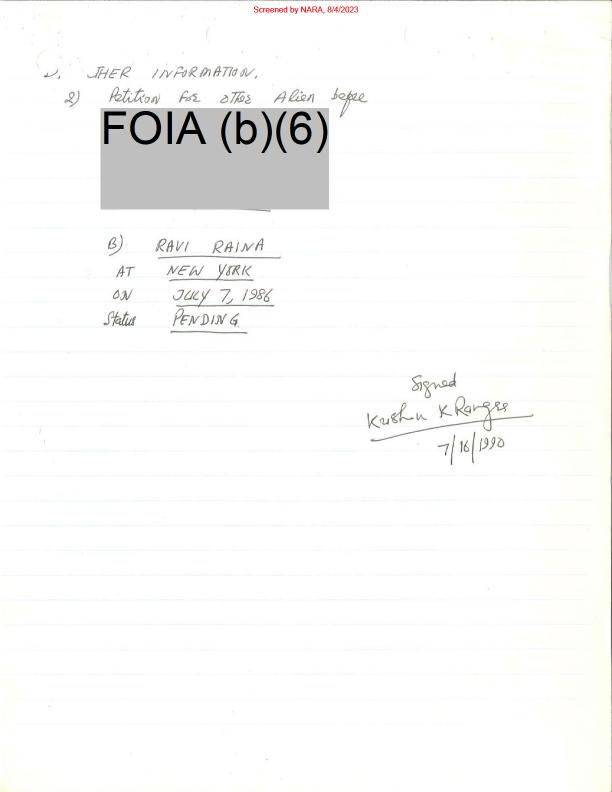 Screened by NARA, 8/4/2023
JHER INFORMATION.
2) Petition FOR OTHER Alien before
FOIA (b)(6)
B) RAVI RAINA
AT NEW YORK
ON JULY 7, 1986
Status PENDING
Signed
Krishn K
7/16/1990